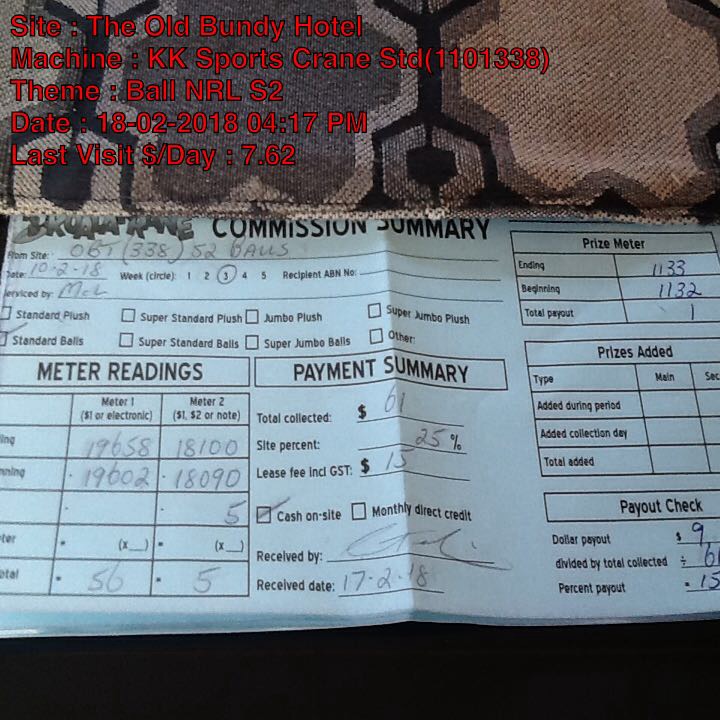 Site : The Old Bundy Hotel
Machine : KK Sports Crane Std(1101338)
Theme : Ball NRL S2
Date : 18-02-2018 04:17 PM
Last Visit $/Day : 7.62
COMMISSION SUMMARY
From Site: OBT (338) S2 BALLS
Date: 10-2-18 Week (circle): 1 2 3 4 5 Recipient ABN No:
Serviced by:
Standard Plush Super Standard Plush Jumbo Plush Super Jumbo Plush
Standard Balls Super Standard Balls Super Jumbo Balls Other:
METER READINGS
Meter 1 Meter 2
($1 or electronic) ($1, $2 or note)
ing 19658 18100
nning 19602 18090
- - 5
ter • (x__) • (x__)
otal • 56 • 5
PAYMENT SUMMARY
Total collected: $ 61
Site percent: 25 %
Lease fee incl GST: $ 15
Cash on-site Monthly direct credit
Received by:
Received date: 17-2-18
Prize Meter
Ending 1133
Beginning 1132
Total payout 1
Prizes Added
Type Main Sec
Added during period
Added collection day
Total added
Payout Check
Dollar payout $ 9
divided by total collected ÷ 61
Percent payout = 15